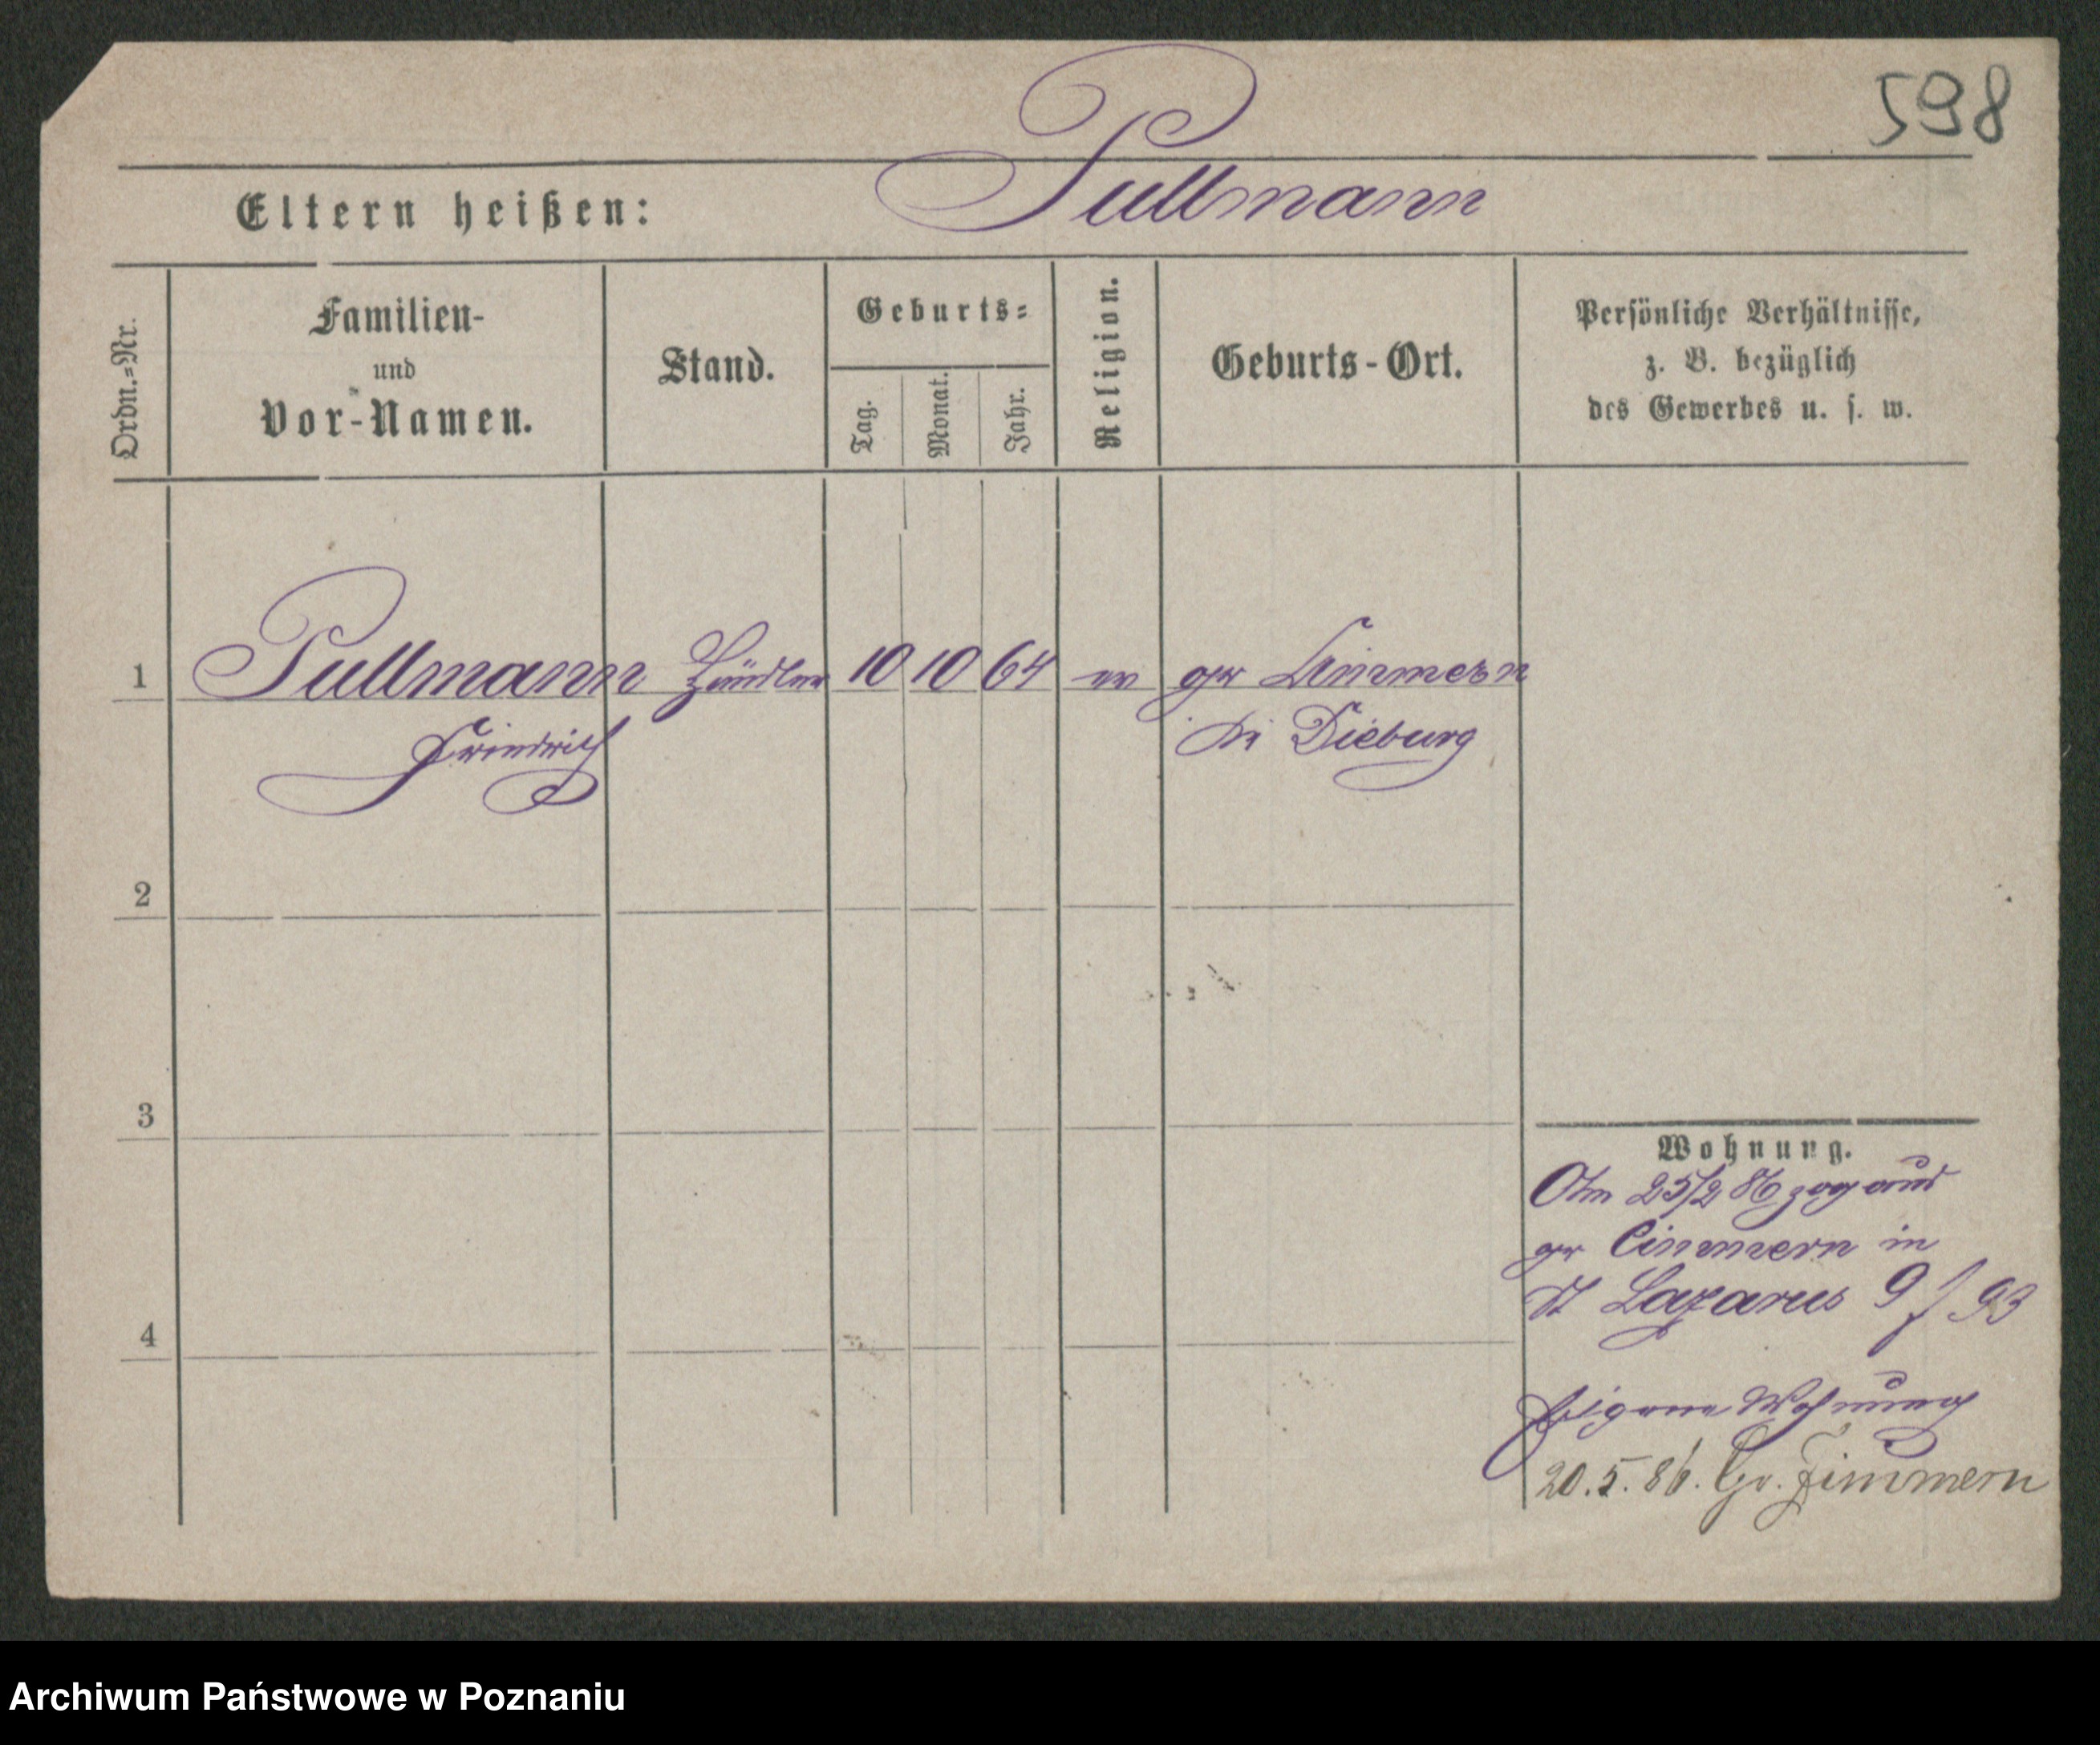 598
Pullmann
Eltern heißen:
Ordn.=Nr.
Familien-
und
Vor-Namen.
Stand.
Geburts=
Tag.
Monat.
Jahr.
Religion.
Geburts-Ort.
Persönliche Verhältnisse,
z. B. bezüglich
des Gewerbes u. s. w.
1 Pullmann Händler 10 10 64 ev gr
Friedrich Dieburg
2
3
4
Wohnung.
Am 25/2 86 zog aus
gr Cimmern in
St Lazarus 9 93
Eigene Wohnung
20.5.86. Gr. Zimmern
Archiwum Państwowe w Poznaniu